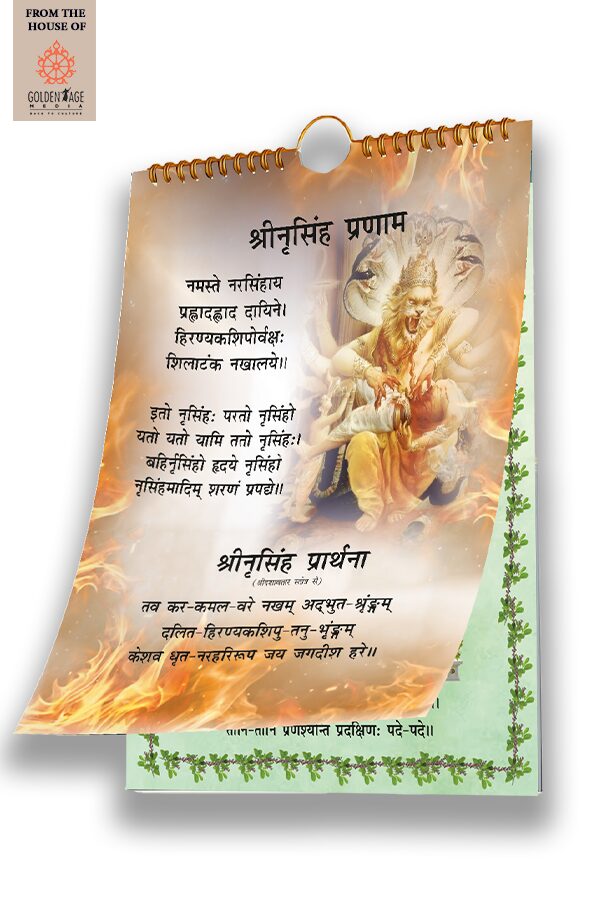 FROM THE
HOUSE OF
GOLDEN AGE
MEDIA
BACK TO CULTURE
श्रीनृसिंह प्रणाम
नमस्ते नरसिंहाय
प्रह्लादह्लाद दायिने।
हिरण्यकशिपोर्वक्षः
शिलाटंक नखालये॥
इतो नृसिंहः परतो नृसिंहो
यतो यतो यामि ततो नृसिंहः।
बहिर्नृसिंहो हृदये नृसिंहो
नृसिंहमादिम् शरणं प्रपद्ये॥
श्रीनृसिंह प्रार्थना
(श्रीदशावतार स्तोत्र से)
तव कर-कमल-वरे नखम् अद्‌भुत-श्रृंङ्गम्
दलित-हिरण्यकशिपु-तनु-भृंङ्गम्
केशव धृत-नरहरिरूप जय जगदीश हरे॥
प्रणश्यन्ति प्रदक्षिणः पदे-पदे॥